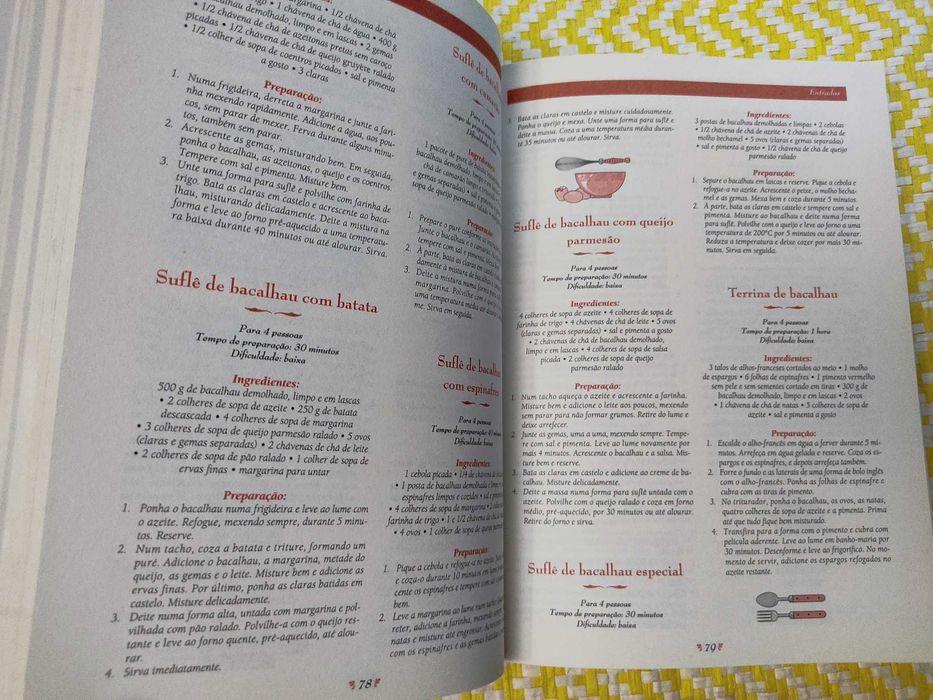 margarina • 1/2 chávena de chá
• 1 chávena de chá de água • 400 g
bacalhau demolhado, limpo e em lascas • 2 gemas
picadas • 1/2 chávena de chá de azeitonas pretas sem caroço
• 1/2 chávena de chá de queijo gruyère ralado
• 1/2 colher de sopa de coentros picados • sal e pimenta
a gosto • 3 claras
Preparação:
1. Numa frigideira, derreta a margarina e junte a fari-
nha mexendo rapidamente. Adicione a água, aos pou-
cos, sem parar de mexer. Ferva durante alguns minu-
tos, também sem parar.
2. Acrescente as gemas, misturando bem. Em seguida,
ponha o bacalhau, as azeitonas, o queijo e os coentros.
Tempere com sal e pimenta. Misture bem.
3. Unte uma forma para suflê e polvilhe com farinha de
trigo. Bata as claras em castelo e acrescente ao baca-
lhau, misturando delicadamente. Deite a mistura na
forma e leve ao forno pré-aquecido a uma temperatu-
ra baixa durante 40 minutos ou até alourar. Sirva.
Suflê de bacalhau com batata
Para 4 pessoas
Tempo de preparação: 30 minutos
Dificuldade: baixa
Ingredientes:
500 g de bacalhau demolhado, limpo e em lascas
• 2 colheres de sopa de azeite • 250 g de batata
descascada • 4 colheres de sopa de margarina
• 3 colheres de sopa de queijo parmesão ralado • 5 ovos
(claras e gemas separadas) • 2 chávenas de chá de leite
• 2 colheres de sopa de pão ralado • 1 colher de sopa de
ervas finas • margarina para untar
Preparação:
1. Ponha o bacalhau numa frigideira e leve ao lume com
o azeite. Refogue, mexendo sempre, durante 5 minu-
tos. Reserve.
2. Num tacho, coza a batata e triture, formando um
puré. Adicione o bacalhau, a margarina, metade do
queijo, as gemas e o leite. Misture bem e adicione as
ervas finas. Por último, ponha as claras batidas em
castelo. Misture delicadamente.
3. Deite numa forma alta, untada com margarina e pol-
vilhada com pão ralado. Polvilhe-a com o queijo res-
tante e leve ao forno quente, pré-aquecido, até alou-
rar.
4. Sirva imediatamente.
78
Suflê de
com
Para 4
Tempo de preparação
Dificuldade
Ingredientes
1 pacote de puré de
bacalhau demolhado,
chá de camarão limpo
e gemas separadas) •
de sopa de queijo parmesão
Preparação
1. Prepare o puré conforme
Junte o bacalhau e o
tempere com sal e pimenta
2. À parte, bata as claras em
damente à mistura de bacalhau
3. Deite a mistura numa forma
margarina. Polvilhe com
uma temperatura média até
me. Sirva em seguida.
Suflê de bacalhau
com espinafres
Para 4 pessoas
Tempo de preparação: 40 minutos
Dificuldade: baixa
Ingredientes
1 cebola picada • 1/4 de chávena
• 1 posta de bacalhau demolhada e limpa
espinafres limpos e cozidos • sal e pimenta
• 4 colheres de sopa de margarina •
farinha de trigo • 1 e 1/2 chávena de
• 4 ovos • 1 colher de sopa de queijo
Preparação
1. Pique a cebola e refogue-a no azeite.
e coza-o durante 10 minutos em lume
cente os espinafres e tempere com sal
bem.
2. Leve a margarina ao lume num tacho
reter, adicione a farinha, misturando
natas e misture até engrossar. Acrescente
com os espinafres e as gemas batendo
Entradas
3. Bata as claras em castelo e misture cuidadosamente.
Ponha o queijo e mexa. Unte uma forma para suflê e
deite a massa. Coza a uma temperatura média duran-
te 35 minutos ou até alourar. Sirva.
Suflê de bacalhau com queijo
parmesão
Para 4 pessoas
Tempo de preparação: 30 minutos
Dificuldade: baixa
Ingredientes:
4 colheres de sopa de azeite • 4 colheres de sopa de
farinha de trigo • 4 chávenas de chá de leite • 5 ovos
(claras e gemas separadas) • sal e pimenta a gosto
• 2 chávenas de chá de bacalhau demolhado,
limpo e em lascas • 4 colheres de sopa de salsa
picada • 2 colheres de sopa de queijo
parmesão ralado
Preparação:
1. Num tacho aqueça o azeite e acrescente a farinha.
Misture bem e adicione o leite aos poucos, mexendo
sem parar para não formar grumos. Retire do lume e
deixe arrefecer.
2. Junte as gemas, uma a uma, mexendo sempre. Tempe-
re com sal e pimenta. Leve ao lume novamente por
mais 4 minutos. Acrescente o bacalhau e a salsa. Mis-
ture bem e reserve.
3. Bata as claras em castelo e adicione ao creme de ba-
calhau. Misture delicadamente.
4. Deite a massa numa forma para suflê untada com o
azeite. Polvilhe com o queijo ralado e coza em forno
médio, pré-aquecido, por 30 minutos ou até alourar.
Retire do forno e sirva.
Suflê de bacalhau especial
Para 4 pessoas
Tempo de preparação: 30 minutos
Dificuldade: baixa
Ingredientes:
3 postas de bacalhau demolhadas e limpas • 2 cebolas
• 1/2 chávena de chá de azeite • 2 chávenas de chá de
molho bechamel • 5 ovos (claras e gemas separadas)
• sal e pimenta a gosto • 1/2 chávena de chá de queijo
parmesão ralado
Preparação:
1. Separe o bacalhau em lascas e reserve. Pique a cebola e
refogue-a no azeite. Acrescente o peixe, o molho becha-
mel e as gemas. Mexa bem e coza durante 5 minutos.
2. À parte, bata as claras em castelo e tempere com sal e
pimenta. Misture ao bacalhau e deite numa forma
para suflê. Polvilhe com o queijo e leve ao forno a uma
temperatura de 200ºC por 5 minutos ou até alourar.
Reduza a temperatura e deixe cozer por mais 30 mi-
nutos. Sirva em seguida.
Terrina de bacalhau
Para 4 pessoas
Tempo de preparação: 1 hora
Dificuldade: baixa
Ingredientes:
3 talos de alhos-franceses cortados ao meio • 1 molho
de espargos • 6 folhas de espinafres • 1 pimento vermelho
sem pele e sem sementes cortado em tiras • 300 g de
bacalhau demolhado, limpo e em lascas • 2 ovos
• 1 chávena de chá de natas • 5 colheres de sopa de
azeite • sal e pimenta a gosto
Preparação:
1. Escalde o alho-francês em água a ferver durante 5 mi-
nutos. Arrefeça em água gelada e reserve. Coza os es-
pargos e os espinafres, e depois arrefeça também.
2. Forre o fundo e as laterais de uma forma de bolo inglês
com o alho-francês. Ponha as folhas de espinafre e
cubra com as tiras de pimento.
3. No triturador, ponha o bacalhau, os ovos, as natas,
quatro colheres de sopa de azeite e a pimenta. Prima
até que tudo fique bem misturado.
4. Transfira para a forma com o pimento e cubra com
película aderente. Leve ao lume em banho-maria por
30 minutos. Desenforme e leve ao frigorífico. No mo-
mento de servir, adicione os espargos refogados no
azeite restante.
79